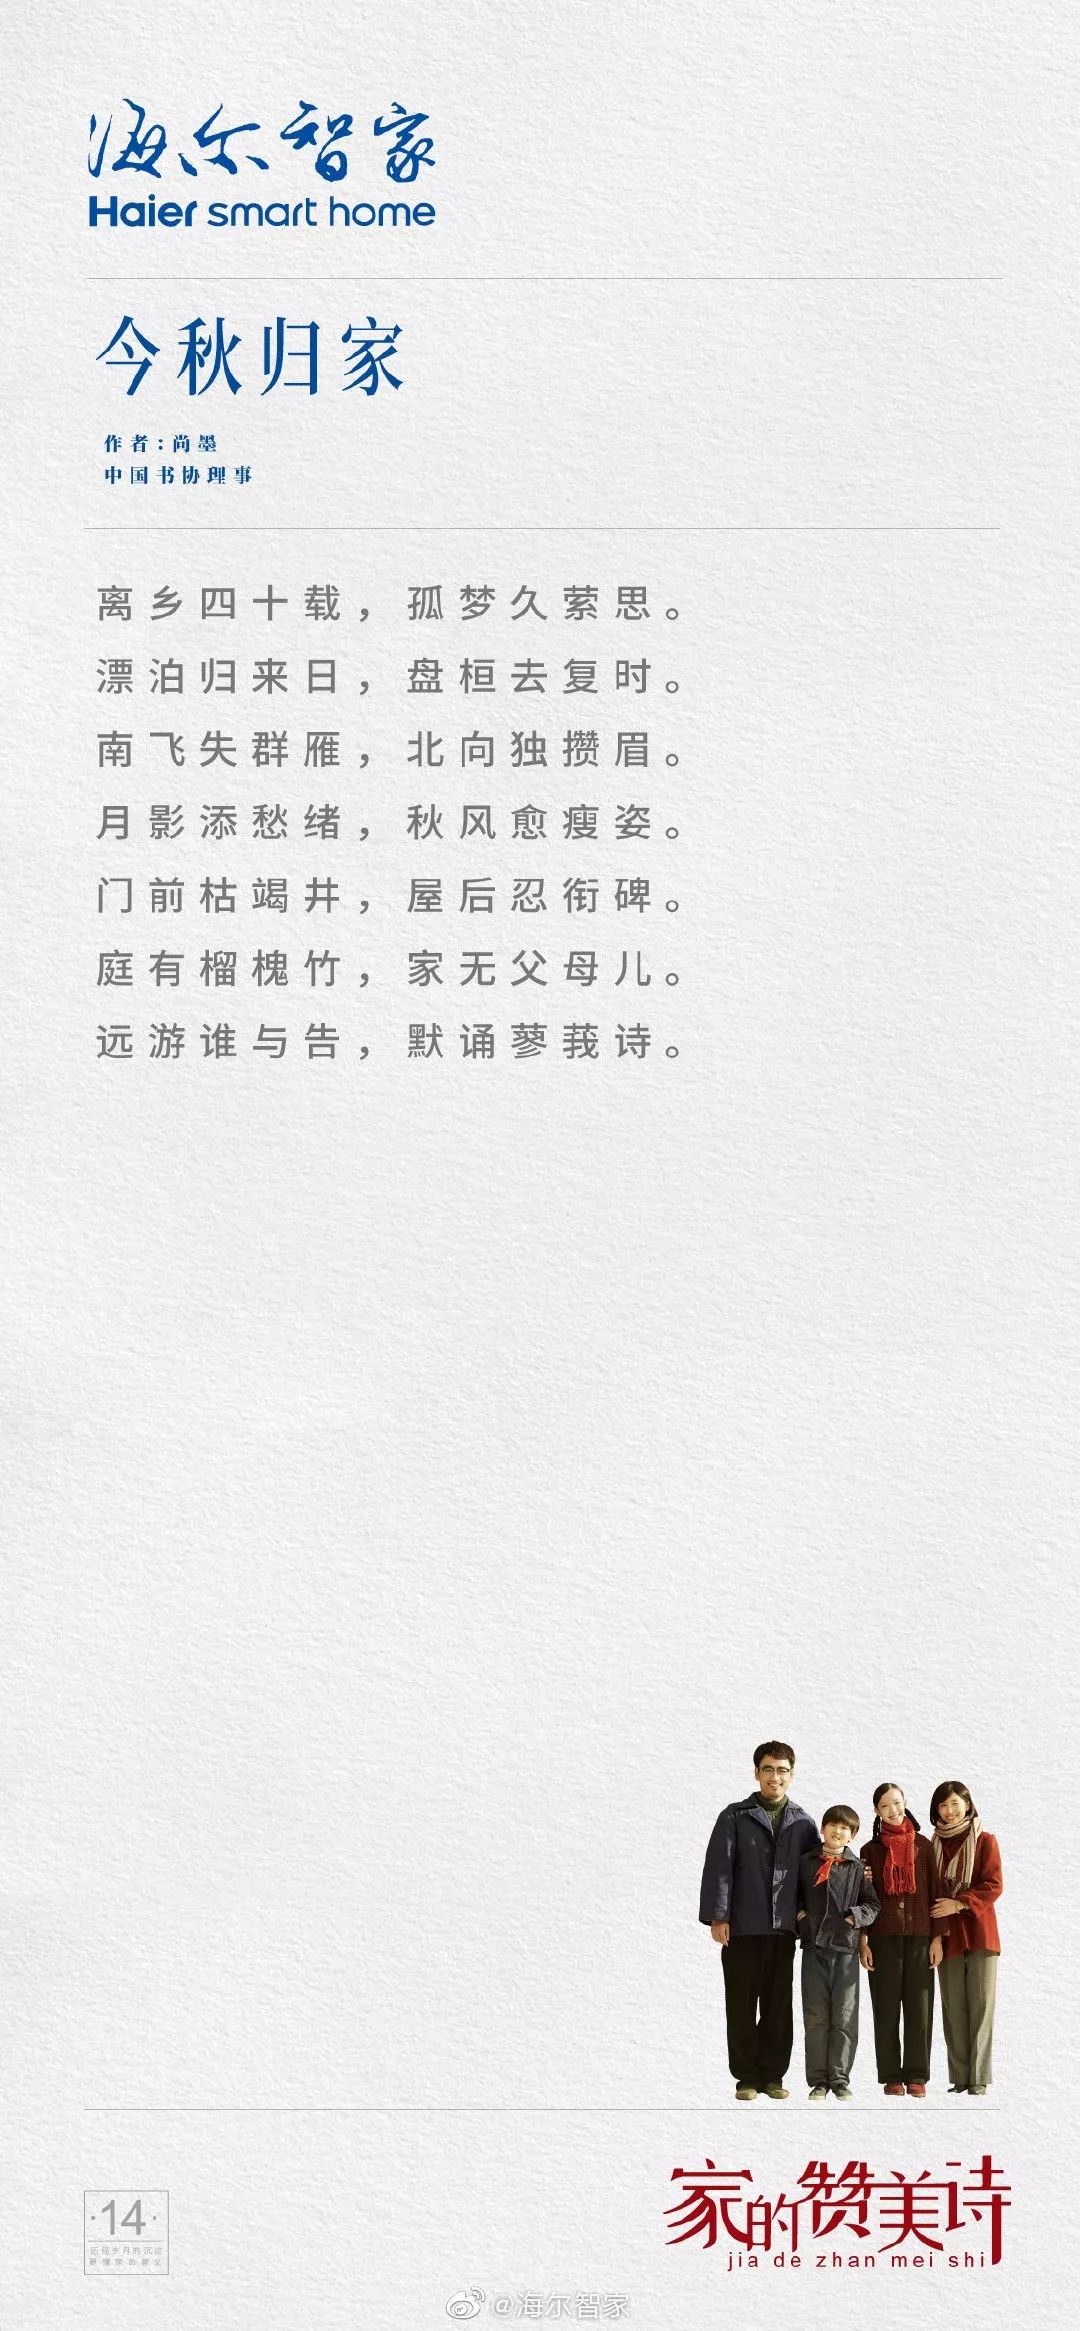 海尔智家
Haier smart home
今秋归家
作者:尚墨
中国书协理事
离乡四十载，孤梦久萦思。
漂泊归来日，盘桓去复时。
南飞失群雁，北向独攒眉。
月影添愁绪，秋风愈瘦姿。
门前枯竭井，屋后忍衔碑。
庭有榴槐竹，家无父母儿。
远游谁与告，默诵蓼莪诗。
·14·
历经岁月的沉淀
更懂家的意义
家的赞美诗
jia de zhan mei shi
@海尔智家